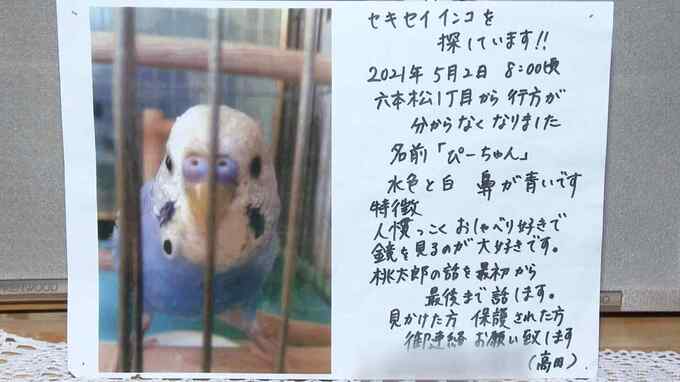 セキセイインコを
探しています!!
2021年 5月2日 8:00頃
六本松1丁目から 行方が
分からなくなりました
名前「ぴーちゃん」
水色と白 鼻が青いです
特徴
人慣っこく おしゃべり好きで
鏡を見るのが大好きです。
桃太郎の話を最初から
最後まで話します。
見かけた方 保護された方
御連絡 お願い致します
(高田)
KENWOOD